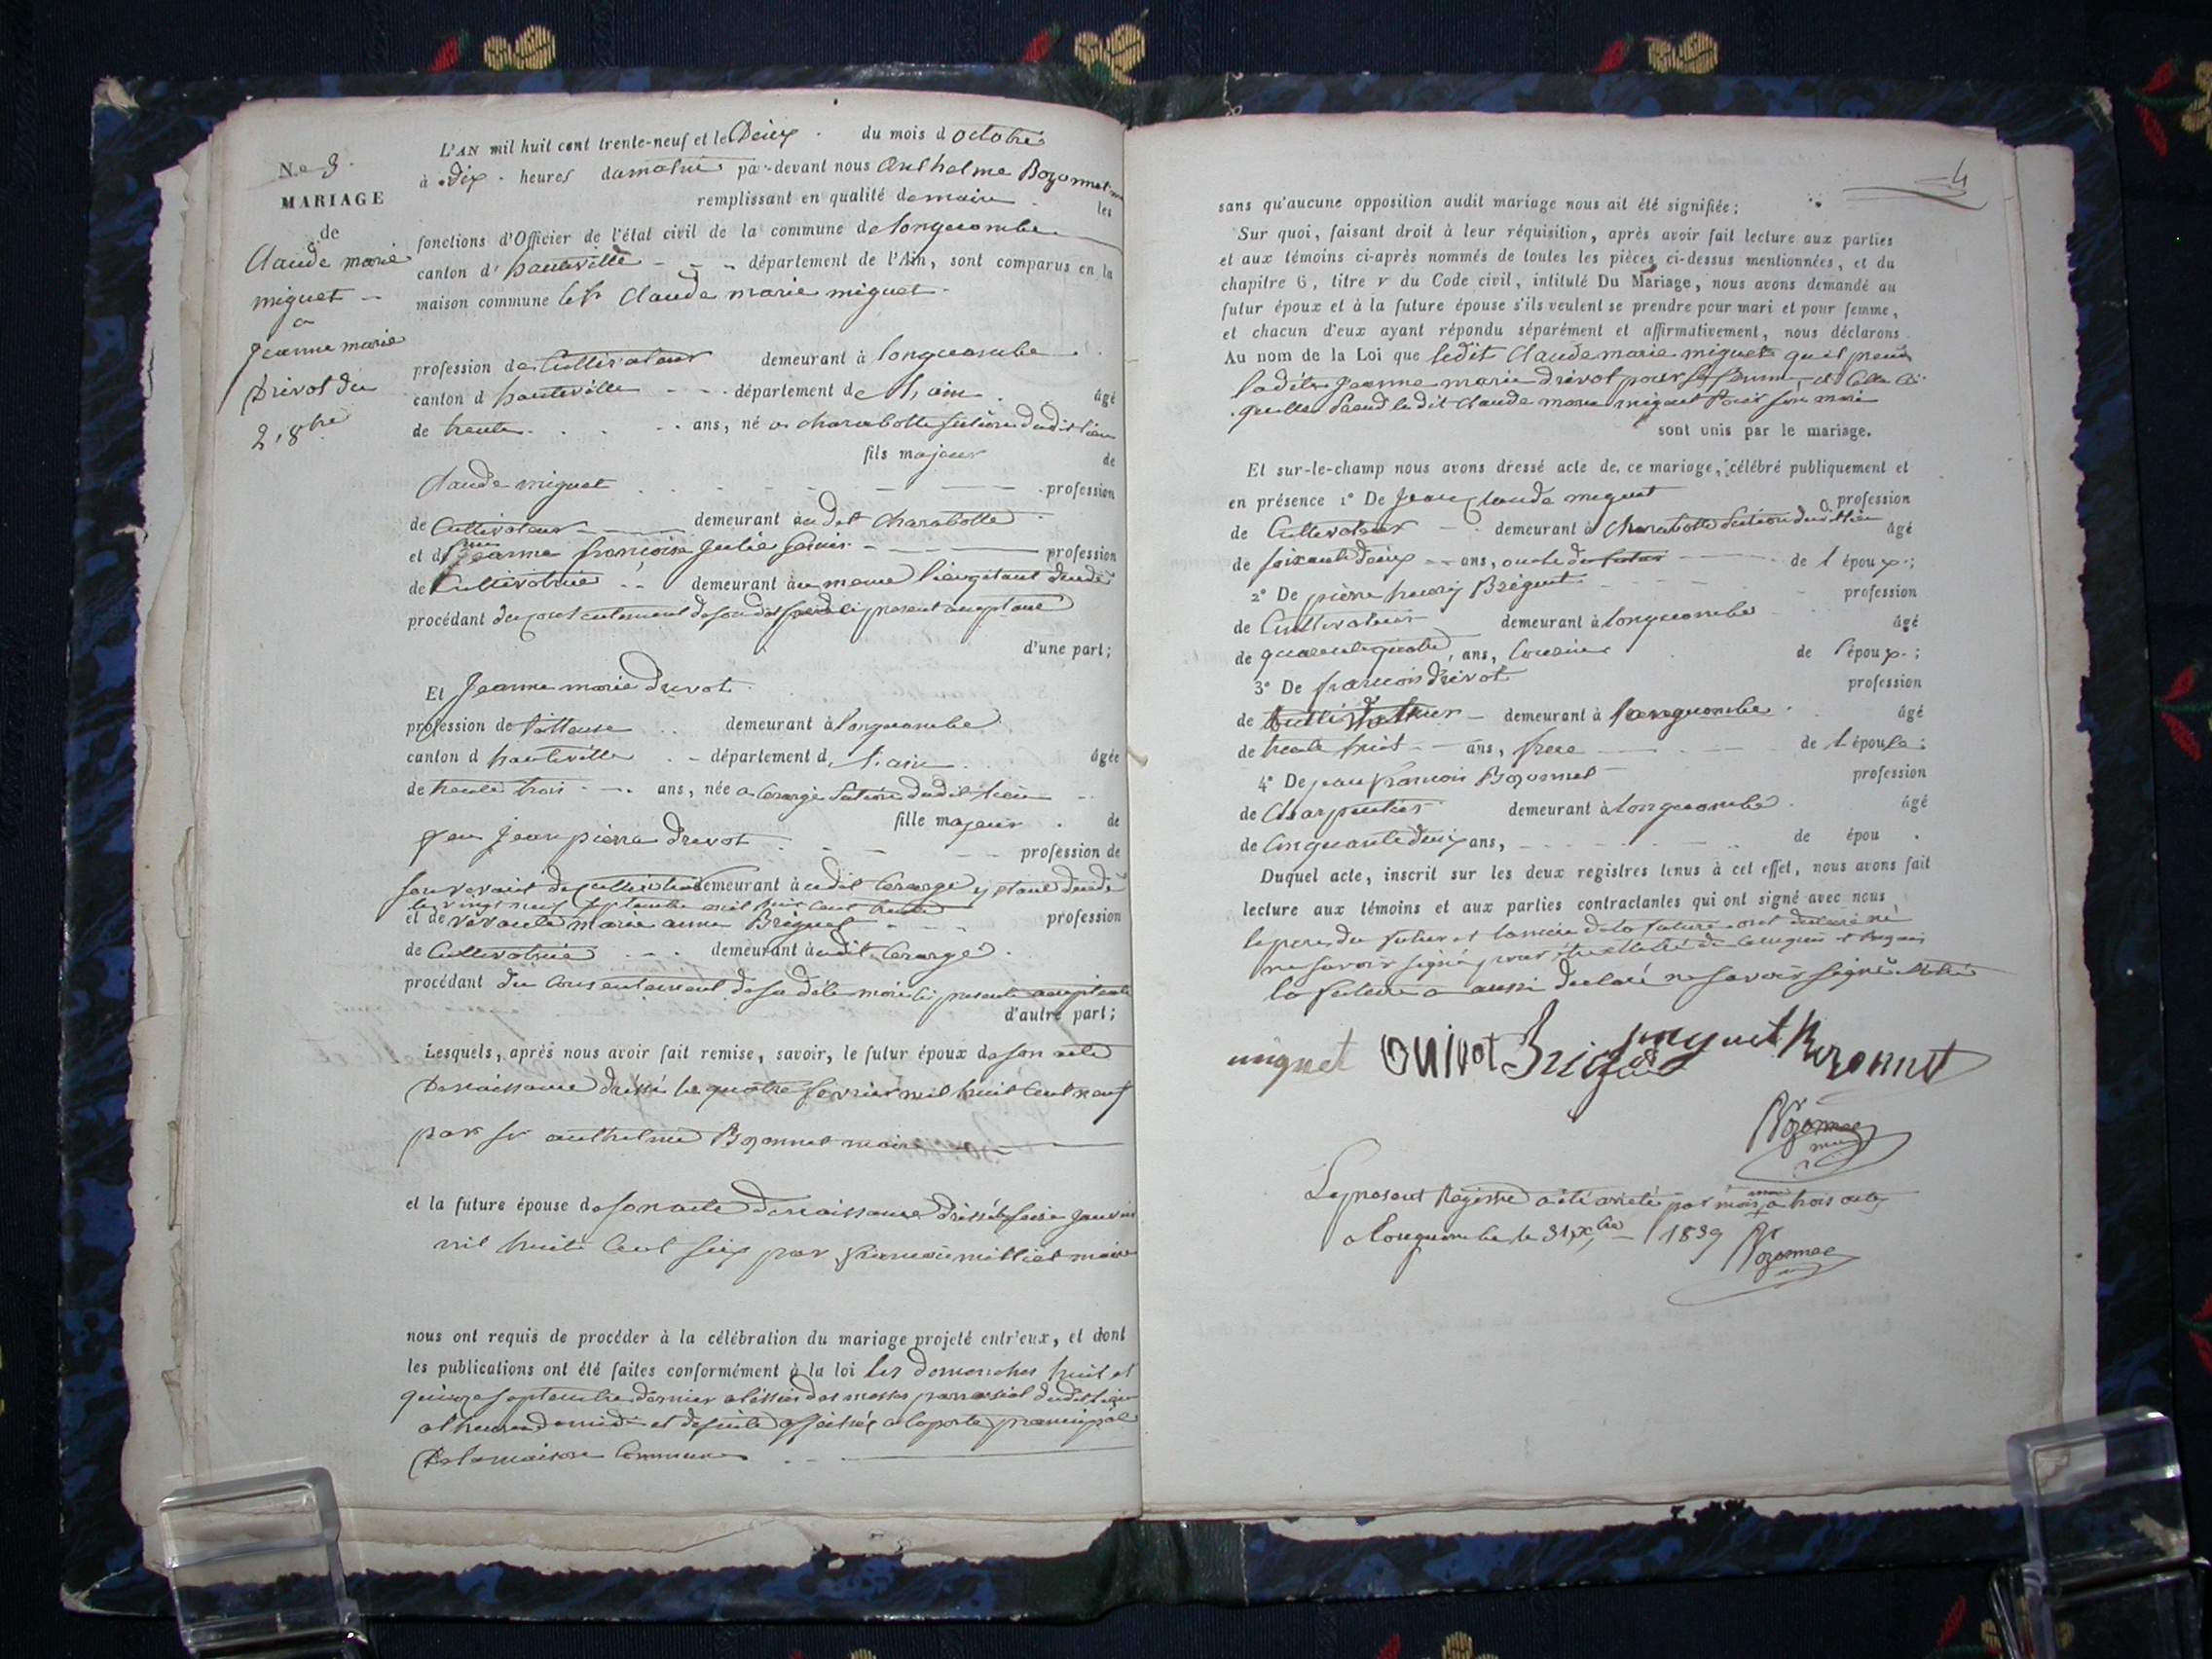 N.o 3.
MARIAGE
de
Claude marie
miguet
a
Jeanne marie
Drivot du
2, 8bre
L'AN mil huit cent trente-neuf et le Deux du mois d octobre
à dix heures du matin par-devant nous Anthelme Bozonnet
remplissant en qualité de maire les
fonctions d'Officier de l'état civil de la commune de longecombe
canton d' hauteville département de l'Ain, sont comparus en la
maison commune le sr Claude marie miguet
profession de Cultivateur demeurant à longecombe
canton d hauteville département de l'ain âgé
de trente ans, né a charabotte section dudit lieu
fils majeur de
Claude miguet profession
de Cultivateur demeurant audit charabotte
et de jeanne françoise Julie profession
de Cultivatrice demeurant au meme lieu
procédant du consentement de son dit present
d'une part;
Et Jeanne marie Drivot
profession de demeurant à longecombe
canton d hauteville département d l'ain âgée
de trente trois ans, née a section dudit lieu
fille majeur de
feu Jean pierre Drivot profession de
son vivant de demeurant audit
le vingt neuf septembre mil huit cent trente
et de vivante marie anne Briguet profession
de Cultivatrice demeurant audit
procédant du consentement de sa dite mère ici presente acceptante
d'autre part;
Lesquels, après nous avoir fait remise, savoir, le futur époux de son acte
De naissance dressé le quatre fevrier mil huit cent neuf
par sr anthelme Bozonnet maire
et la future épouse de son acte De naissance dressé le janvier
mil huite cent six par françois milliet maire
nous ont requis de procéder à la célébration du mariage projeté entr'eux, et dont
les publications ont été faites conformément à la loi les domenches huit et
quinze septembre dernier a l'issue des messes parroissial dudit lieu
a l'heure de midi et de suite affichée a la porte principale
De la maison Commune
4
sans qu'aucune opposition audit mariage nous ait été signifiée;
Sur quoi, faisant droit à leur réquisition, après avoir fait lecture aux parties
et aux témoins ci-après nommés de toutes les pièces ci-dessus mentionnées, et du
chapitre 6, titre v du Code civil, intitulé Du Mariage, nous avons demandé au
futur époux et à la future épouse s'ils veulent se prendre pour mari et pour femme,
et chacun d'eux ayant répondu séparément et affirmativement, nous déclarons
Au nom de la Loi que ledit Claude marie miguet quil prend
ladite Jeanne marie drivot pour sa femme, et Celle Ci
quelle Prend le dit Claude marie miguet Pour son mari
sont unis par le mariage.
Et sur-le-champ nous avons dressé acte de ce mariage, célébré publiquement et
en présence 1° De Jean Claude miguet profession
de Cultivateur demeurant à Charabotte Section dudit lieu âgé
de soixante deux ans, oncle du futur de l époux;
2° De pierre Briguet profession
de Cultivateur demeurant à longecombe âgé
de quarante quatre, ans, Cousin de l'époux;
3° De francois Drivot profession
de demeurant à longecombe âgé
de trente huit ans, frere de l épouse;
4° De jean francois Bozonnet profession
de Charpentier demeurant à longecombe âgé
de Cinquante deux ans, de épou
Duquel acte, inscrit sur les deux registres tenus à cet effet, nous avons fait
lecture aux témoins et aux parties contractantes qui ont signé avec nous
le pere du futur et la mère de la future ont declaré ne
ne savoir signé pour
la future a aussi declaré ne savoir signé
miguet Drivot Briguet miguet Bozonnet
Bozonnet
Le present Registre a été arreté par maire a trois actes
a longecombe le 31, xbre 1839 Bozonnet